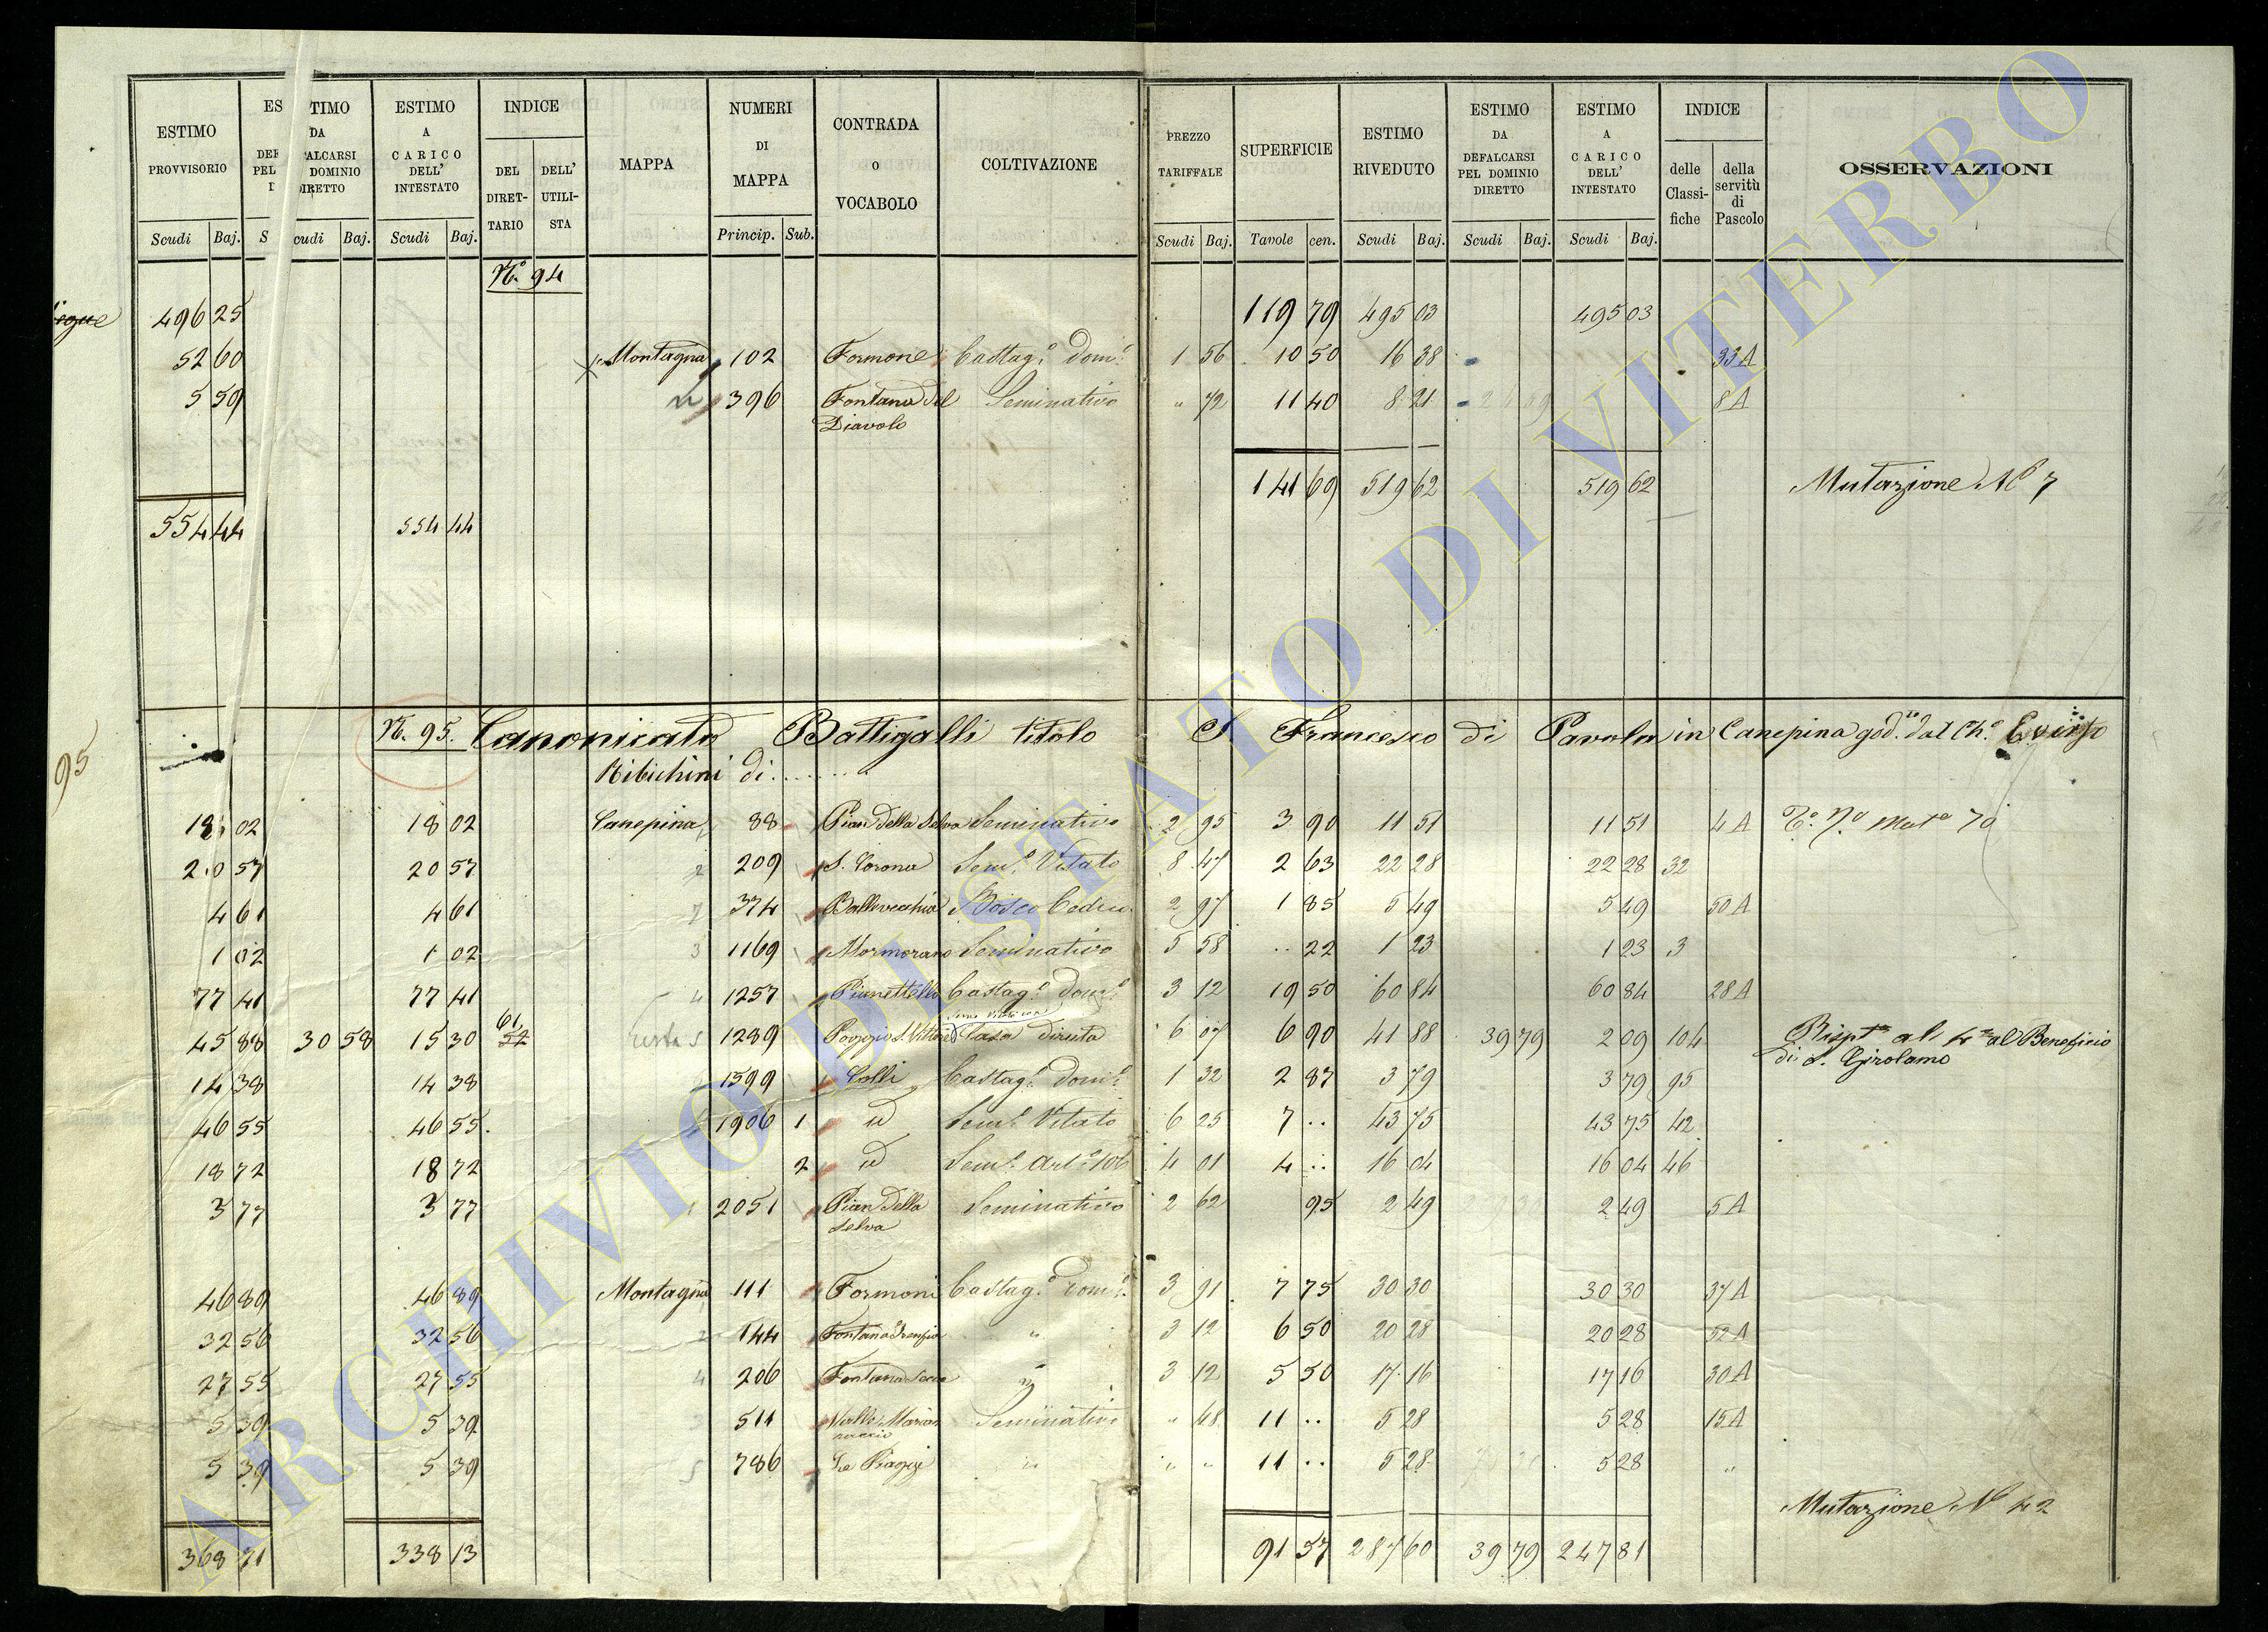 ESTIMO PROVVISORIO
ESTIMO DA DEFALCARSI PEL DOMINIO DIRETTO
ESTIMO A CARICO DELL' INTESTATO
INDICE DEL DIRETTARIO DELL' UTILISTA
MAPPA
NUMERI DI MAPPA
CONTRADA O VOCABOLO
COLTIVAZIONE
PREZZO TARIFFALE
SUPERFICIE
ESTIMO RIVEDUTO
ESTIMO DA DEFALCARSI PEL DOMINIO DIRETTO
ESTIMO A CARICO DELL' INTESTATO
INDICE delle Classifiche della servitù di Pascolo
OSSERVAZIONI
Scudi Baj. Scudi Baj. Scudi Baj. Princip. Sub. Scudi Baj. Tavole cen. Scudi Baj. Scudi Baj. Scudi Baj.
N.° 94
496 25 119 79 495 03 495 03
52 60 Montagna 102 Formone Castag.° Dom.° 1 56 10 50 16 38 33A
5 59 396 Fontana del Diavolo Seminativo " 72 11 40 8 21 8A
141 69 519 62 519 62 Mutazione N° 7
554 44 554 44
95
N. 95. Canonicato Battigalli titolo S Francesco di Pavola in Canepina god.to dal Ch.°
Ribichini di........
18 02 18 02 Canepina 88 Pian della Selva Seminativo 2 95 3 90 11 51 11 51 4A
20 57 20 57 209 S. Corona Sem.° Vitato 8 47 2 63 22 28 22 28 32
4 61 4 61 374 Vallevecchia Bosco Ceduo 2 97 1 85 5 49 5 49 50A
1 02 1 02 1169 Mormorano Seminativo 5 58 .. 22 1 23 1 23 3
77 41 77 41 1257 Pianettello Castag.° Dom.° 3 12 19 50 60 84 60 84 28A
45 88 30 58 15 30 61 1289 Poggio S. Vittore Casa diruta 6 07 6 90 41 88 39 79 2 09 104 Risp.te al 4.to al Beneficio di S. Girolamo
14 38 14 38 1599 Colli Castag.° Dom.° 1 32 2 87 3 79 3 79 95
46 55 46 55 1906 1 id Sem.° Vitato 6 25 7 .. 43 75 43 75 42
18 72 18 72 2 id Sem.° Art.° 106 4 01 4 .. 16 04 16 04 46
3 77 3 77 2051 Pian della Selva Seminativo 2 62 95 2 49 2 49 5A
46 89 46 89 Montagna 111 Formoni Castag.° Dom.° 3 91 7 75 30 30 30 30 37A
32 56 32 56 144 Fontana " 3 12 6 50 20 28 20 28 52A
27 55 27 55 206 Fontana Secca " 3 12 5 50 17 16 17 16 30A
5 39 5 39 511 Valle Seminativo " 48 11 .. 5 28 5 28 15A
5 39 5 39 786 Le Piagge " " " 11 .. 5 28 5 28 "
Mutazione N° 42
368 71 338 13 91 57 287 60 39 79 247 81
ARCHIVIO DI STATO DI VITERBO